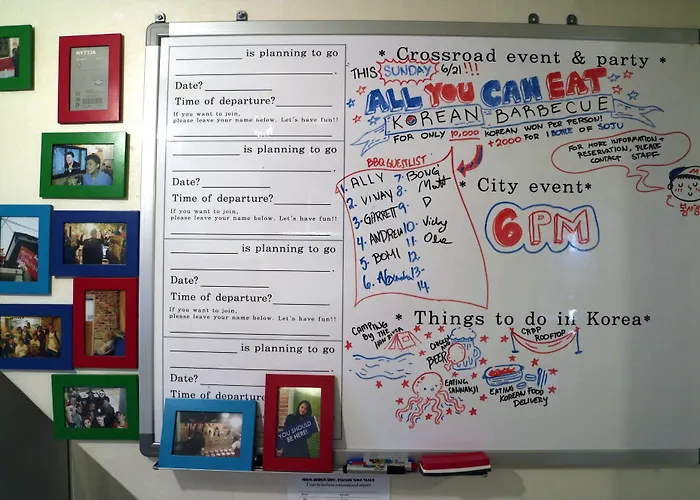 ____________ is planning to go
____________________.
Date? ____________
Time of departure? __________
If you want to join,
please leave your name below. Let's have fun!!
____________ is planning to go
____________________.
Date? ____________
Time of departure? __________
If you want to join,
please leave your name below. Let's have fun!!
____________ is planning to go
____________________.
Date? ____________
Time of departure? __________
If you want to join,
please leave your name below. Let's have fun!!
____________ is planning to go
____________________.
Date? ____________
Time of departure?
YOU SHOULD
BE HERE!
* Crossroad event & party *
THIS SUNDAY 6/21!!!
ALL YOU CAN EAT
KOREAN BARBECUE
FOR ONLY 10,000 KOREAN WON PER PERSON!
+2000 FOR 1 BOTTLE OF SOTU
FOR MORE INFORMATION +
RESERVATION, PLEASE
CONTACT STAFF
BBQ GUESTLIST
1. ALLY
2. VINAY
3. GARRETT
4. ANDREW
5. BOMI
6.
7. BONG
8. Matt
9. D
10. Vicky
11.
12.
13.
14.
* City event*
6PM
* Things to do in Korea*
CAMPING
BY THE
CHICKEN
BEER
CRBP
ROOFTOP
EATING
SANNAKJI
EATING
KOREAN FOOD
DELIVERY